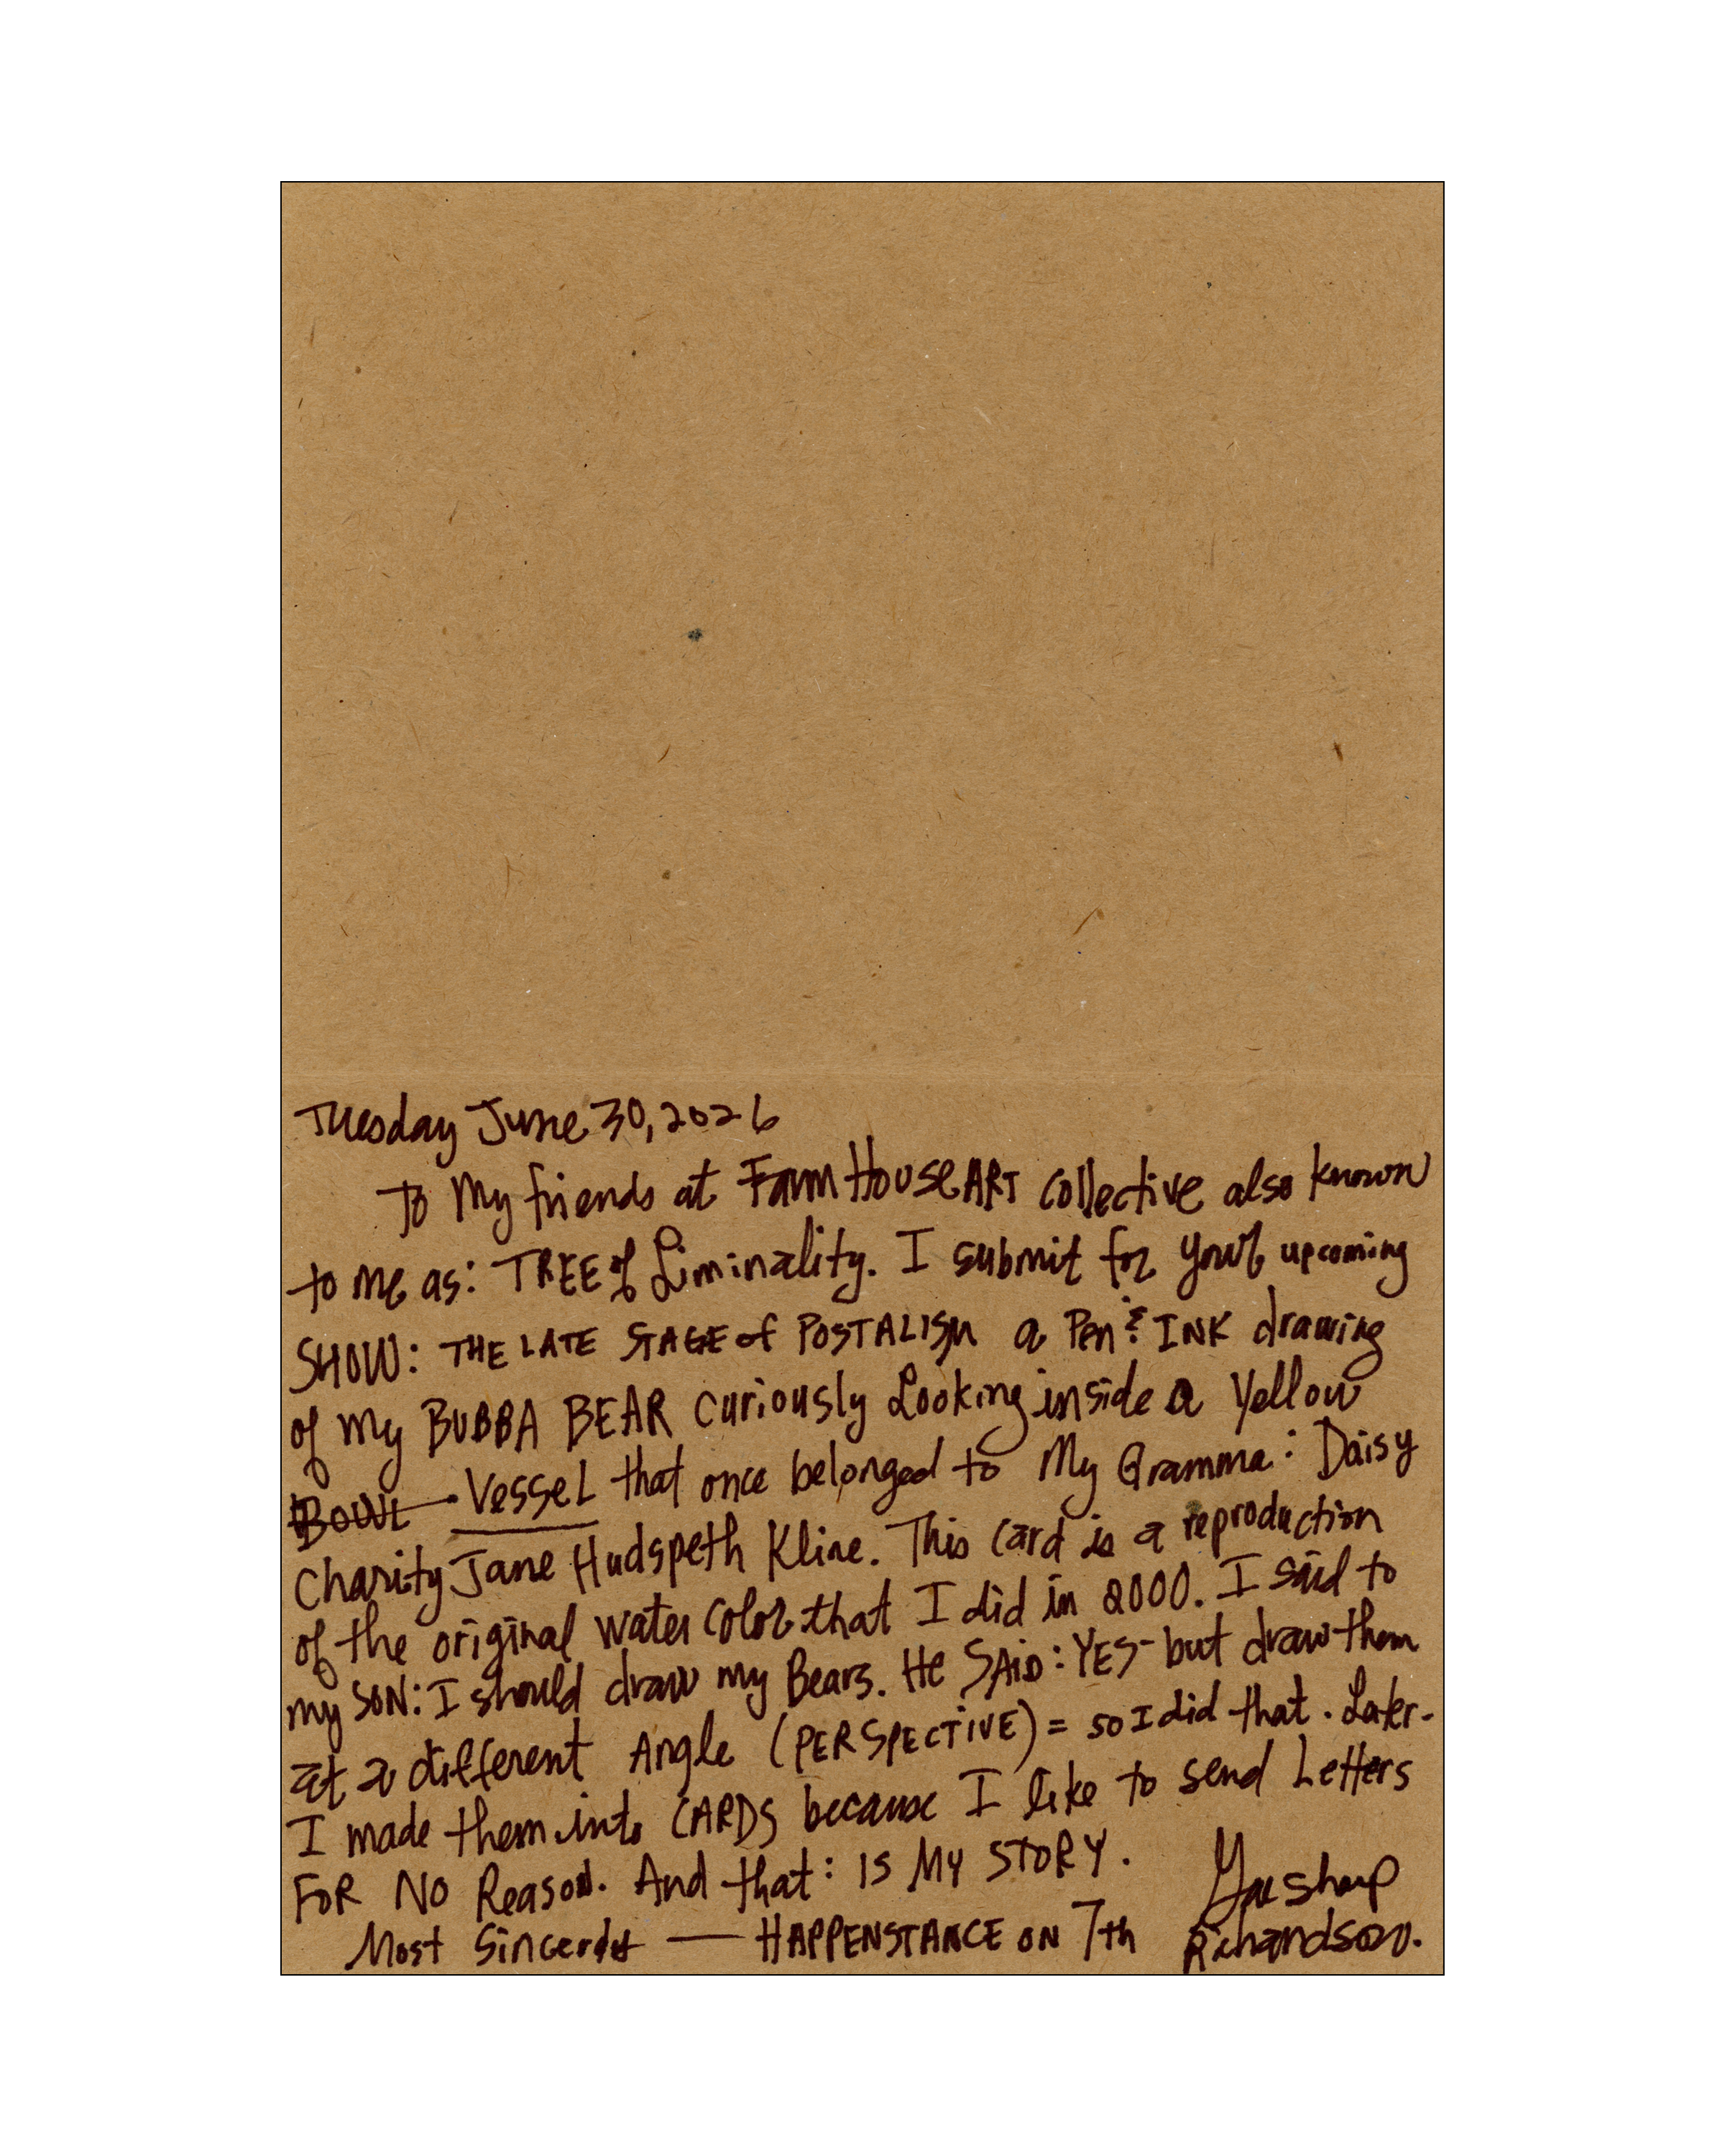 Tuesday June 30, 2026
To My friends at Farm House ART collective also known
to me as: TREE of Liminality. I submit for your upcoming
SHOW: THE LATE STAGE of POSTALISM a Pen & INK drawing
of my BUBBA BEAR curiously Looking inside a Yellow
BOWL Vessel that once belonged to My Gramma: Daisy
Charity Jane Hudspeth Kline. This card is a reproduction
of the original water color that I did in 2000. I said to
my SON: I should draw my Bears. He SAID: YES- but draw them
at a different Angle (PERSPECTIVE) = so I did that. Later-
I made them into CARDS because I like to send Letters
FOR NO Reason. And that: IS MY STORY.
Most Sincerely — HAPPENSTANCE ON 7th
Sharp
Richardson.